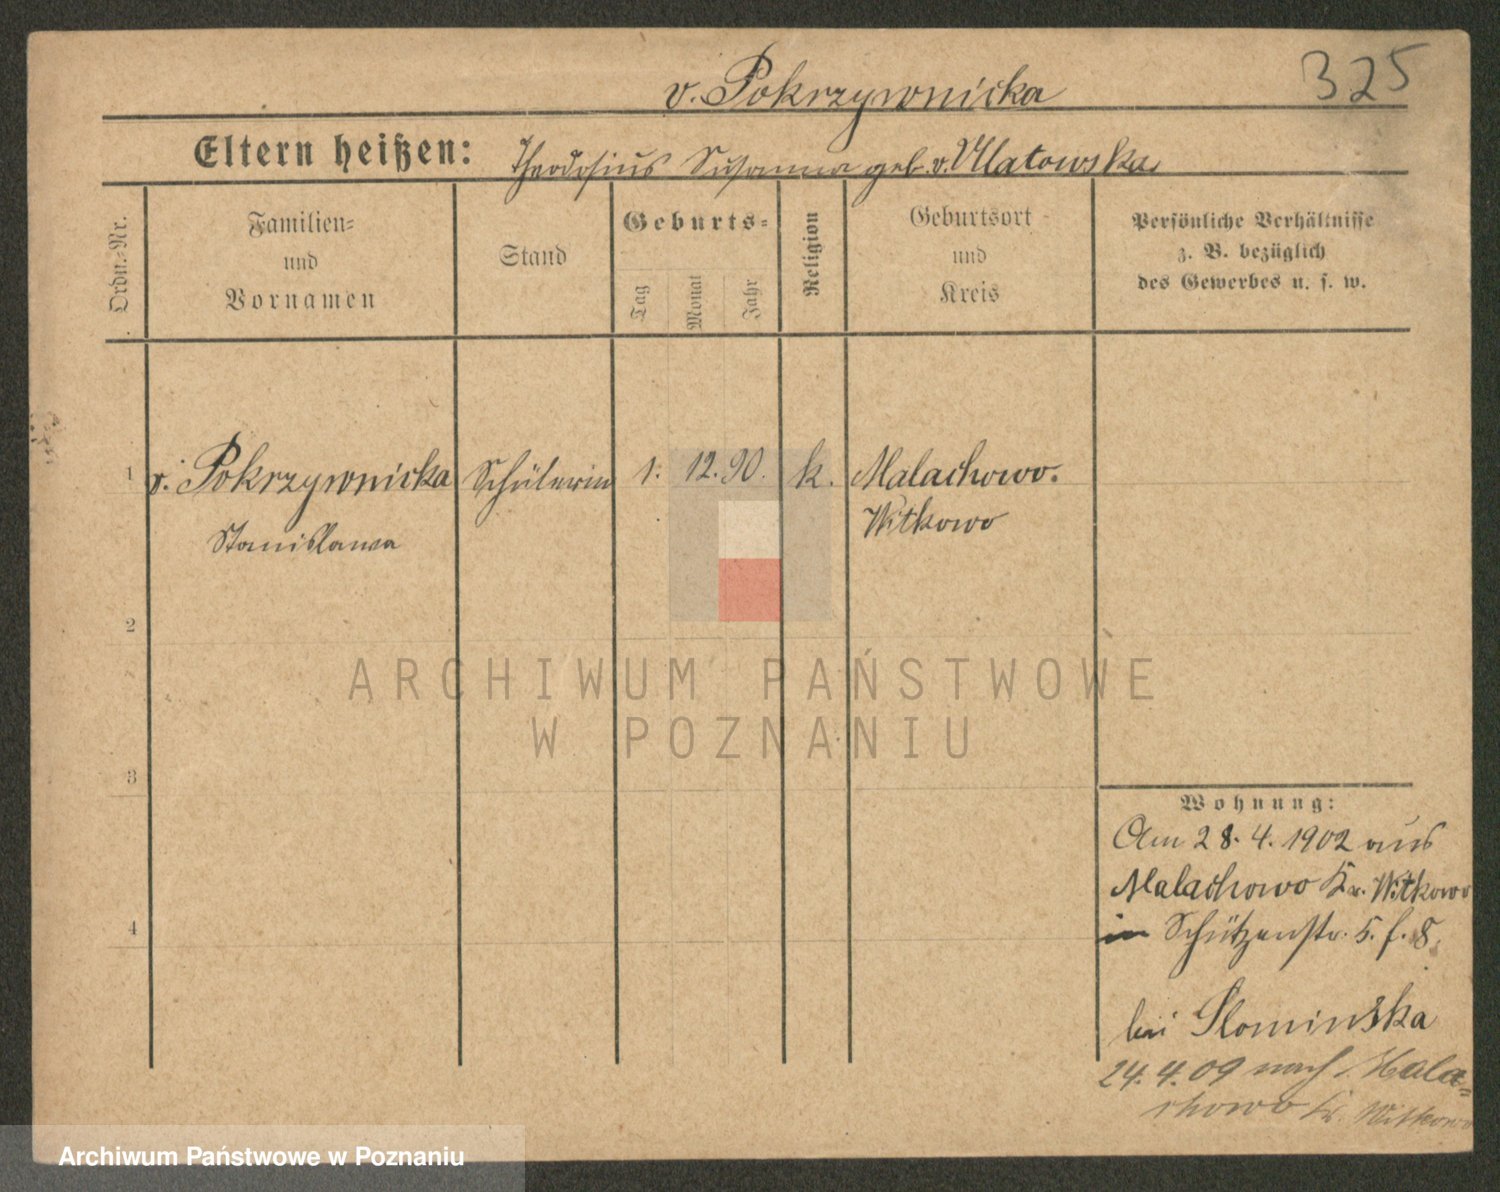 v. Pokrzywnicka
325
Eltern heißen: Theodosius Susanna geb. v. Ulatowska
Ordn.-Nr.
Familien- und Vornamen
Stand
Geburts-
Tag
Monat
Jahr
Religion
Geburtsort und Kreis
Persönliche Verhältnisse
z. B. bezüglich
des Gewerbes u. s. w.
1 v. Pokrzywnicka Schülerin 1. 12. 90. k. Malachowo.
Stanislawa Witkowo
2
3
4
ARCHIWUM PAŃSTWOWE
W POZNANIU
Wohnung:
Am 28. 4. 1902 aus
Malachowo Kr. Witkowo
in Schützenstr. 5. f. 8.
bei Slominska
24. 4. 09 nach Mala-
chowo Kr. Witkowo
Archiwum Państwowe w Poznaniu